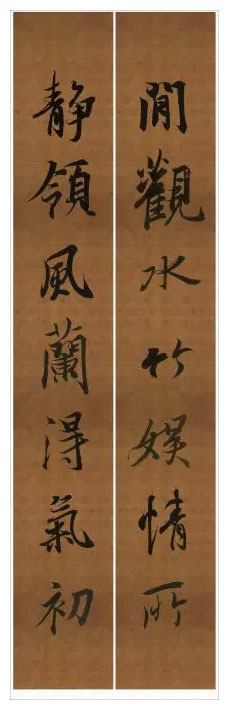 閒觀水竹娛情所
静領風蘭得氣初